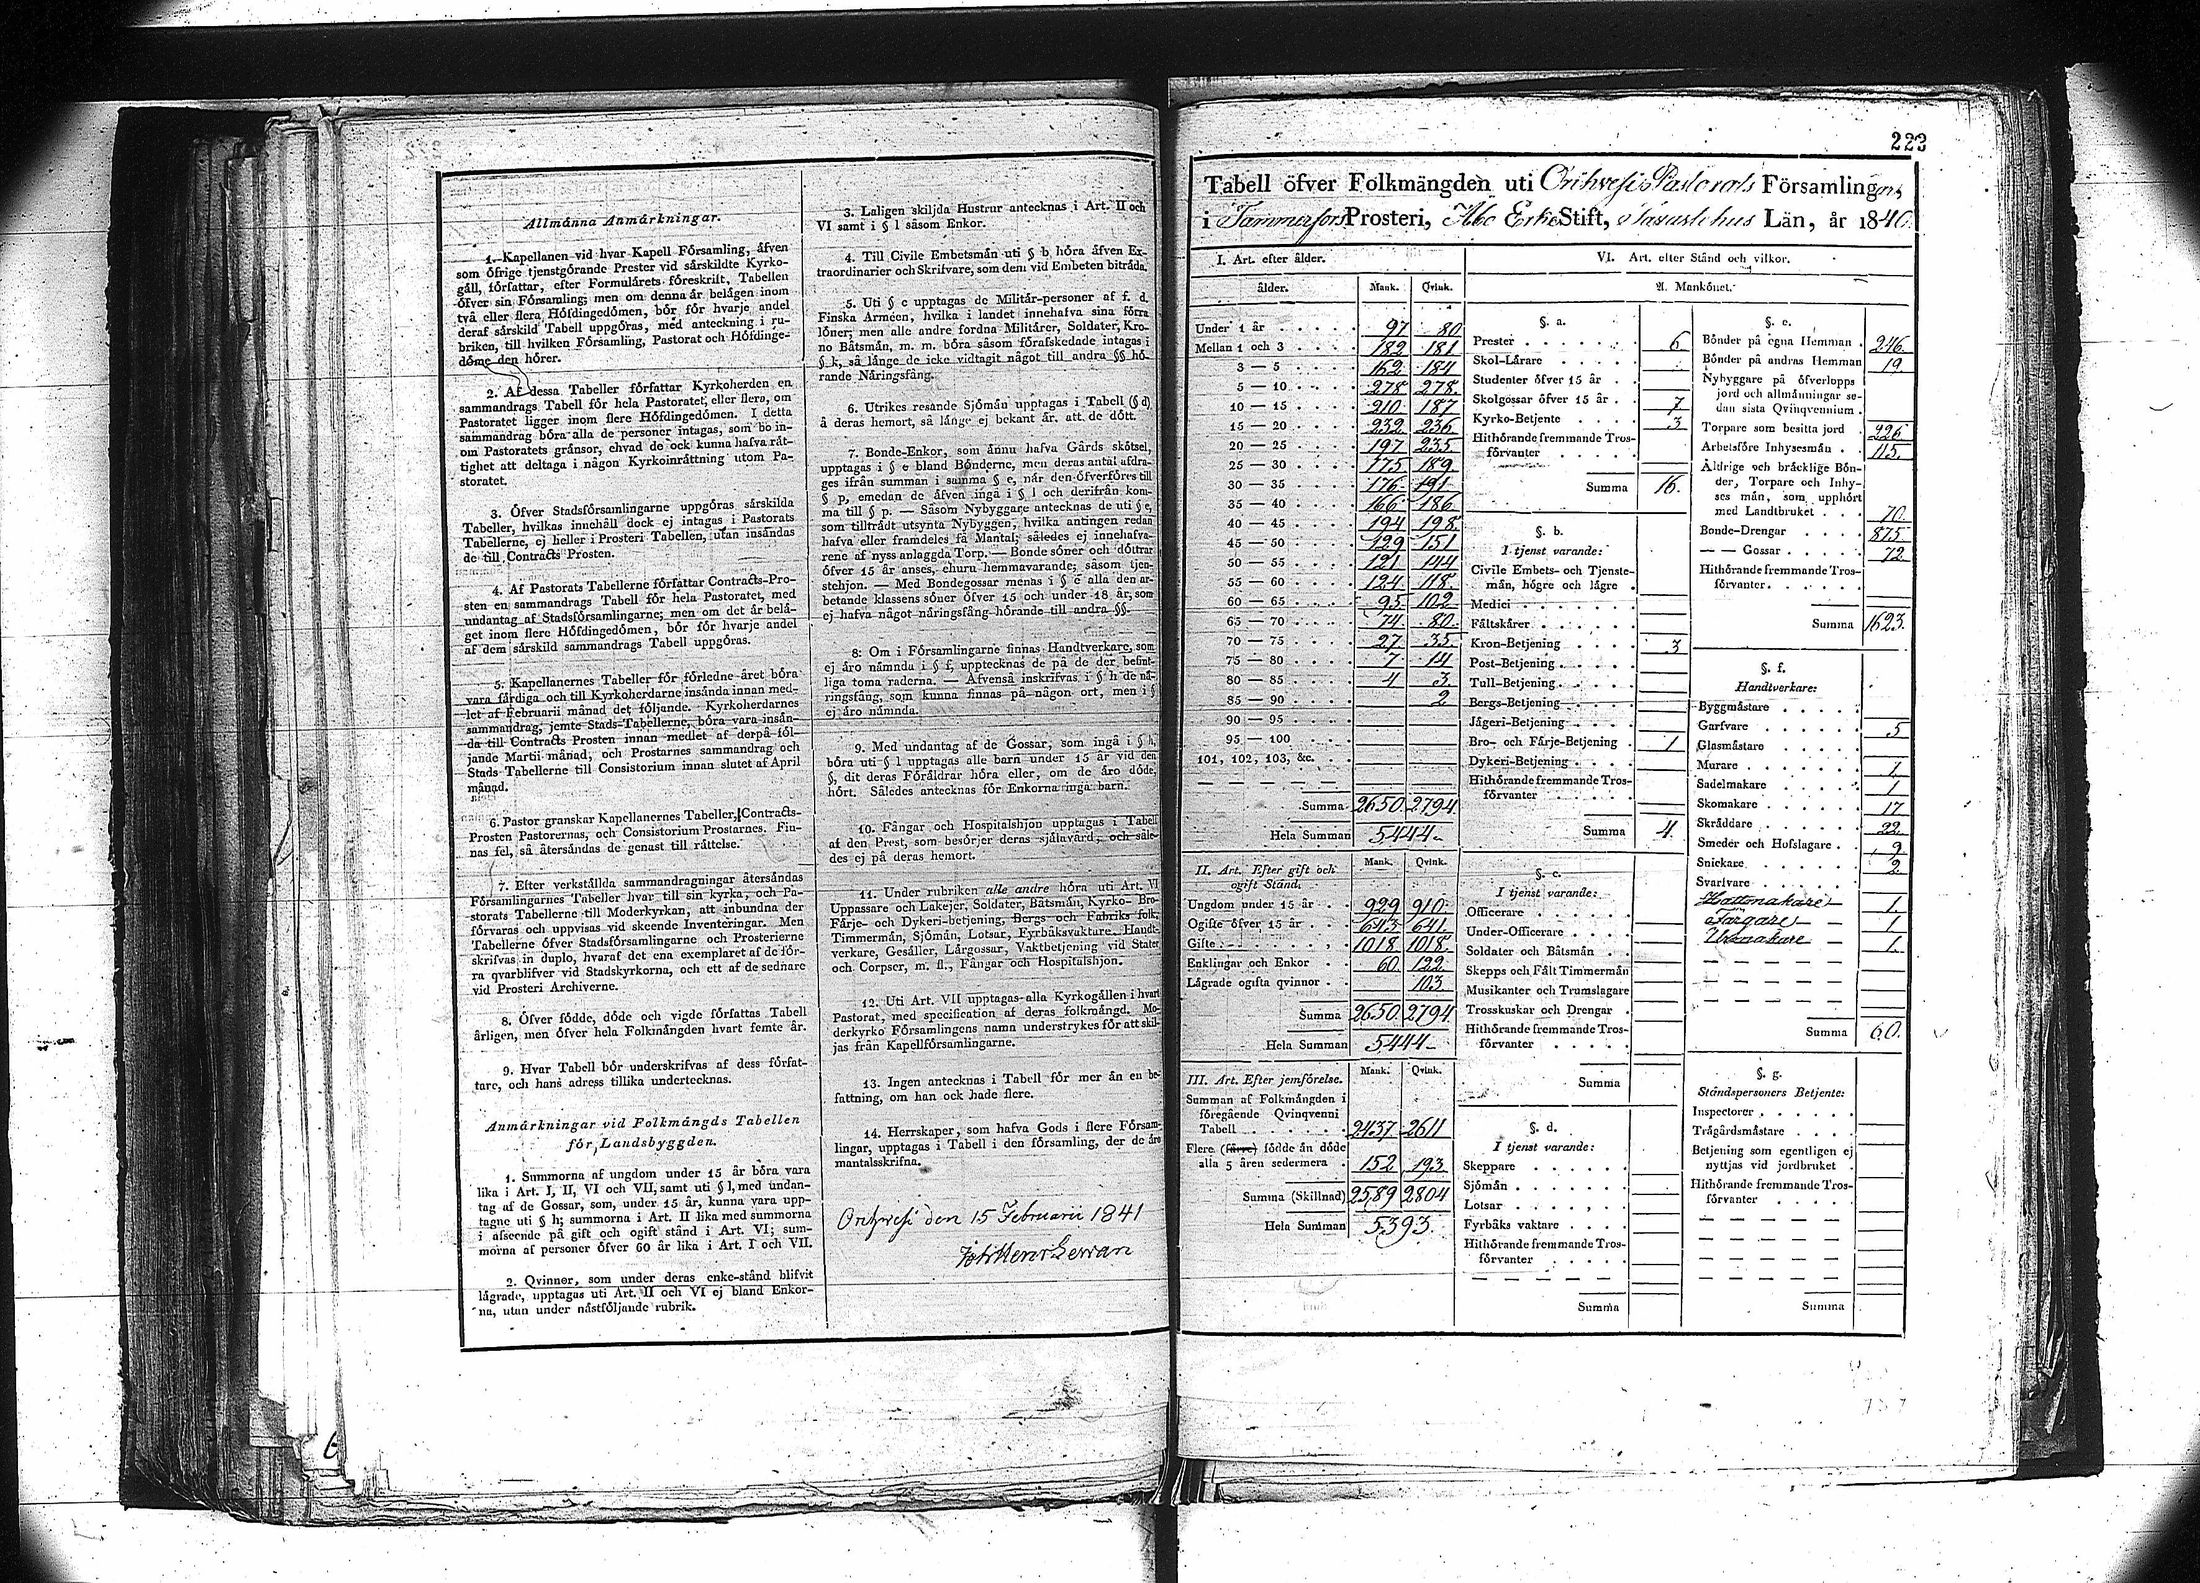 Allmänna Anmärkningar.
1. Kapellanen vid hvar Kapell Församling, äfven
som öfrige tjenstgörande Prester vid särskildte Kyrko-
gäll, författar, efter Formulärets föreskrift, Tabellen
öfver sin Församling; men om denna är belägen inom
två eller flera Höfdingedömen, bör för hvarje andel
deraf särskild Tabell uppgöras, med anteckning i ru-
briken, till hvilken Församling, Pastorat och Höfdinge-
döme den hörer.
2. Af dessa Tabeller författar Kyrkoherden en
sammandrags Tabell för hela Pastoratet, eller flera, om
Pastoratet ligger inom flere Höfdingedömen. I detta
sammandrag böra alla de personer intagas, som bo in-
om Pastoratets gränsor, ehvad de ock kunna hafva rät-
tighet att deltaga i någon Kyrkoinrättning utom Pa-
storatet.
3. Öfver Stadsförsamlingarne uppgöras särskilda
Tabeller, hvilkas innehåll dock ej intages i Pastorats
Tabellerne, ej heller i Prosteri Tabellen, utan insändas
de till Contracts Prosten.
4. Af Pastorats Tabellerne författar Contracts-Pro-
sten en sammandrags Tabell för hela Pastoratet, med
undantag af Stadsförsamlingarne; men om det är belä-
get inom flere Höfdingedömen, bör för hvarje andel
af dem särskild sammandrags Tabell uppgöras.
5. Kapellanernes Tabeller för förledne året böra
vara färdiga och till Kyrkoherdarne insända innan med-
let af Februarii månad det följande. Kyrkoherdarnes
sammandrag, jemte Stads-Tabellerne, böra vara insän-
da till Contracts Prosten innan medlet af derpå föl-
jande Martii månad, och Prostarnes sammandrag och
Stads Tabellerne till Consistorium innan slutet af April
månad.
6. Pastor granskar Kapellanernes Tabeller, Contracts-
Prosten Pastorernas, och Consistorium Prostarnes. Fin-
nas fel, så återsändas de genast till rättelse.
7. Efter verkställda sammandragningar återsändas
Församlingarnes Tabeller hvar till sin kyrka, och Pa-
storats Tabellerne till Moderkyrkan, att inbundna der
förvaras och uppvisas vid skeende Inventeringar. Men
Tabellerne öfver Stadsförsamlingarne och Prosterierne
skrifvas in duplo, hvaraf det ena exemplaret af de för-
ra qvarblifver vid Stadskyrkorna, och ett af de sednare
vid Prosteri Archiverne.
8. Öfver födde, döde och vigde författas Tabell
årligen, men öfver hela Folkmängden hvart femte år.
9. Hvar Tabell bör underskrifvas af dess förfat-
tare, och hans adress tillika undertecknas.
Anmärkningar vid Folkmängds Tabellen
för Landsbyggden.
1. Summorna af ungdom under 15 år böra vara
lika i Art. I, II, VI och VII, samt uti § l, med undan-
tag af de Gossar, som, under 15 år, kunna vara upp-
tagne uti § h; summorna i Art. II lika med summorna
i afseende på gift och ogift stånd i Art. VI; sum-
morna af personer öfver 60 år lika i Art. I och VII.
2. Qvinnor, som under deras enke-stånd blifvit
lägrade, upptagas uti Art. II och VI ej bland Enkor-
na, utan under nästföljande rubrik.
3. Laligen skiljda Hustrur antecknas i Art. II och
VI samt i § l såsom Enkor.
4. Till Civile Embetsmän uti § b höra äfven Ex-
traordinarier och Skrifvare, som dem vid Embeten biträda.
5. Uti § c upptagas de Militär-personer af f. d.
Finska Armeen, hvilka i landet innehafva sina förra
löner; men alle andre fordna Militärer, Soldater, Kro-
no Båtsmän, m. m. böra såsom förafskedade intagas i
§ k, så länge de icke vidtagit något till andra §§ hö-
rande Näringsfång.
6. Utrikes resande Sjömän upptagas i Tabell (§ d)
å deras hemort, så länge ej bekant är, att de dött.
7. Bonde-Enkor, som ännu hafva Gårds skötsel,
upptagas i § e bland Bönderne, men deras antal afdra-
ges ifrån summan i samma § e, när den öfverföres till
§ p, emedan de äfven ingå i § l och derifrån kom-
ma till § p. — Såsom Nybyggare antecknas de uti § e,
som tillträdt utsynta Nybyggen, hvilka antingen redan
hafva eller framdeles få Mantal; således ej innehafva-
rene af nyss anlaggda Torp. — Bonde söner och döttrar
öfver 15 år anses, ehuru hemmavarande, såsom tjen-
stehjon. — Med Bondegossar menas i § e alla den ar-
betande klassens söner öfver 15 och under 18 år, som
ej hafva något näringsfång hörande till andra §§.
8. Om i Församlingarne finnas Handtverkare, som
ej äro nämnda i § f, upptecknas de på de der befint-
liga toma raderna. — Äfvenså inskrifvas i § h de nä-
ringsfång, som kunna finnas på någon ort, men i §
ej äro nämnda.
9. Med undantag af de Gossar, som ingå i § h,
böra uti § l upptagas alle barn under 15 år vid den
§, dit deras Föräldrar höra eller, om de äro döde,
hört. Således antecknas för Enkorna inga barn.
10. Fångar och Hospitalshjon upptagas i Tabell
af den Prest, som besörjer deras själavård, och såle-
des ej på deras hemort.
11. Under rubriken alle andre höra uti Art. VI
Uppassare och Lakejer, Soldater, Båtsmän, Kyrko- Bro-
Färje- och Dykeri-betjening, Bergs och Fabriks folk,
Timmermän, Sjömän, Lotsar, Fyrbåksvaktare, Handt-
verkare, Gesäller, Lärgossar, Vaktbetjening vid Stater
och Corpser, m. fl., Fångar och Hospitalshjon.
12. Uti Art. VII upptagas alla Kyrkogällen i hvart
Pastorat, med specification af deras folkmängd. Mo-
derkyrko Församlingens namn understrykes för att skil-
jas från Kapellförsamlingarne.
13. Ingen antecknas i Tabell för mer än en be-
fattning, om han ock hade flere.
14. Herrskaper, som hafva Gods i flere Försam-
lingar, upptagas i Tabell i den församling, der de äro
mantalsskrifna.
Orihvesi den 15 Februarii 1841
223
Tabell öfver Folkmängden uti Orihvesi Pastorats Församlingar,
i Tammerfors Prosteri, Åbo Erke Stift, Tavastehus Län, år 1840.
I. Art. efter ålder.
ålder. Mank. Qvink.
Under 1 år 97 80
Mellan 1 och 3 182 181
3 — 5 162 184
5 — 10 278 278
10 — 15 210 187
15 — 20 232 236
20 — 25 197 235
25 — 30 175 189
30 — 35 176 191
35 — 40 166 186
40 — 45 194 198
45 — 50 129 151
50 — 55 121 144
55 — 60 124 118
60 — 65 95 102
65 — 70 74 80
70 — 75 27 35
75 — 80 7 14
80 — 85 4 3
85 — 90 2
90 — 95
95 — 100
101, 102, 103, &c.
Summa 2650 2794
Hela Summan 5444
II. Art. Efter gift och
ogift Stånd. Mank. Qvink.
Ungdom under 15 år 929 910
Ogifte öfver 15 år 643 641
Gifte 1018 1018
Enklingar och Enkor 60 122
Lägrade ogifta qvinnor 103
Summa 2650 2794
Hela Summan 5444
III. Art. Efter jemförelse. Mank. Qvink.
Summan af Folkmängden i
föregående Qvinqvenni
Tabell 2437 2611
Flere (färre) födde än döde
alla 5 åren sedermera 152 193
Summa (Skillnad) 2589 2804
Hela Summan 5393
VI. Art. efter Stånd och vilkor.
A. Mankönet.
§. a.
Prester 6
Skol-Lärare
Studenter öfver 15 år
Skolgossar öfver 15 år 7
Kyrko-Betjente 3
Hithörande fremmande Tros-
förvanter
Summa 16.
§. b.
I tjenst varande:
Civile Embets- och Tjenste-
män, högre och lägre
Medici
Fältskärer
Kron-Betjening 3
Post-Betjening
Tull-Betjening
Bergs-Betjening
Jägeri-Betjening
Bro- och Färje-Betjening 1
Dykeri-Betjening
Hithörande fremmande Tros-
förvanter
Summa 4.
§. c.
I tjenst varande:
Officerare
Under-Officerare
Soldater och Båtsmän
Skepps och Fält Timmermän
Musikanter och Trumslagare
Trosskuskar och Drengar
Hithörande fremmande Tros-
förvanter
Summa
§. d.
I tjenst varande:
Skeppare
Sjömän
Lotsar
Fyrbåks vaktare
Hithörande fremmande Tros-
förvanter
Summa
§. e.
Bönder på egna Hemman 246
Bönder på andras Hemman 19
Nybyggare på öfverlopps
jord och allmänningar se-
dan sista Qvinqvennium
Torpare som besitta jord 226
Arbetsföre Inhysesmän 115
Åldrige och bräcklige Bön-
der, Torpare och Inhy-
ses män, som upphört
med Landtbruket 70
Bonde-Drengar 875
— — Gossar 72
Hithörande fremmande Tros-
förvanter
Summa 1623.
§. f.
Handtverkare:
Byggmästare
Garfvare 5
Glasmästare
Murare 1
Sadelmakare 1
Skomakare 17
Skräddare 22
Smeder och Hofslagare 9
Snickare 2
Svarfvare
Hattmakare 1
Färgare 1
Urmakare 1
Summa 60.
§. g.
Ståndspersoners Betjente:
Inspectorer
Trägårdsmästare
Betjening som egentligen ej
nyttjas vid jordbruket
Hithörande fremmande Tros-
förvanter
Summa